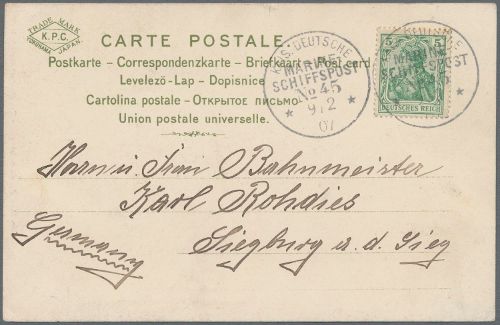 TRADE MARK
K.P.C.
YOKOHAMA JAPAN.
CARTE POSTALE
Postkarte – Correspondenzkarte – Briefkaart – Post card
Levelező-Lap – Dopisnice
Cartolina postale – Открытое письмо
Union postale universelle.
KAIS. DEUTSCHE
MARINE
SCHIFFSPOST
No 45
9/2
07
5 5
MARINE
SCHIFFSPOST
DEUTSCHES REICH
Herrn u. Frau Bahnmeister
Karl Rohdies
Germany
Siegburg a. d. Sieg